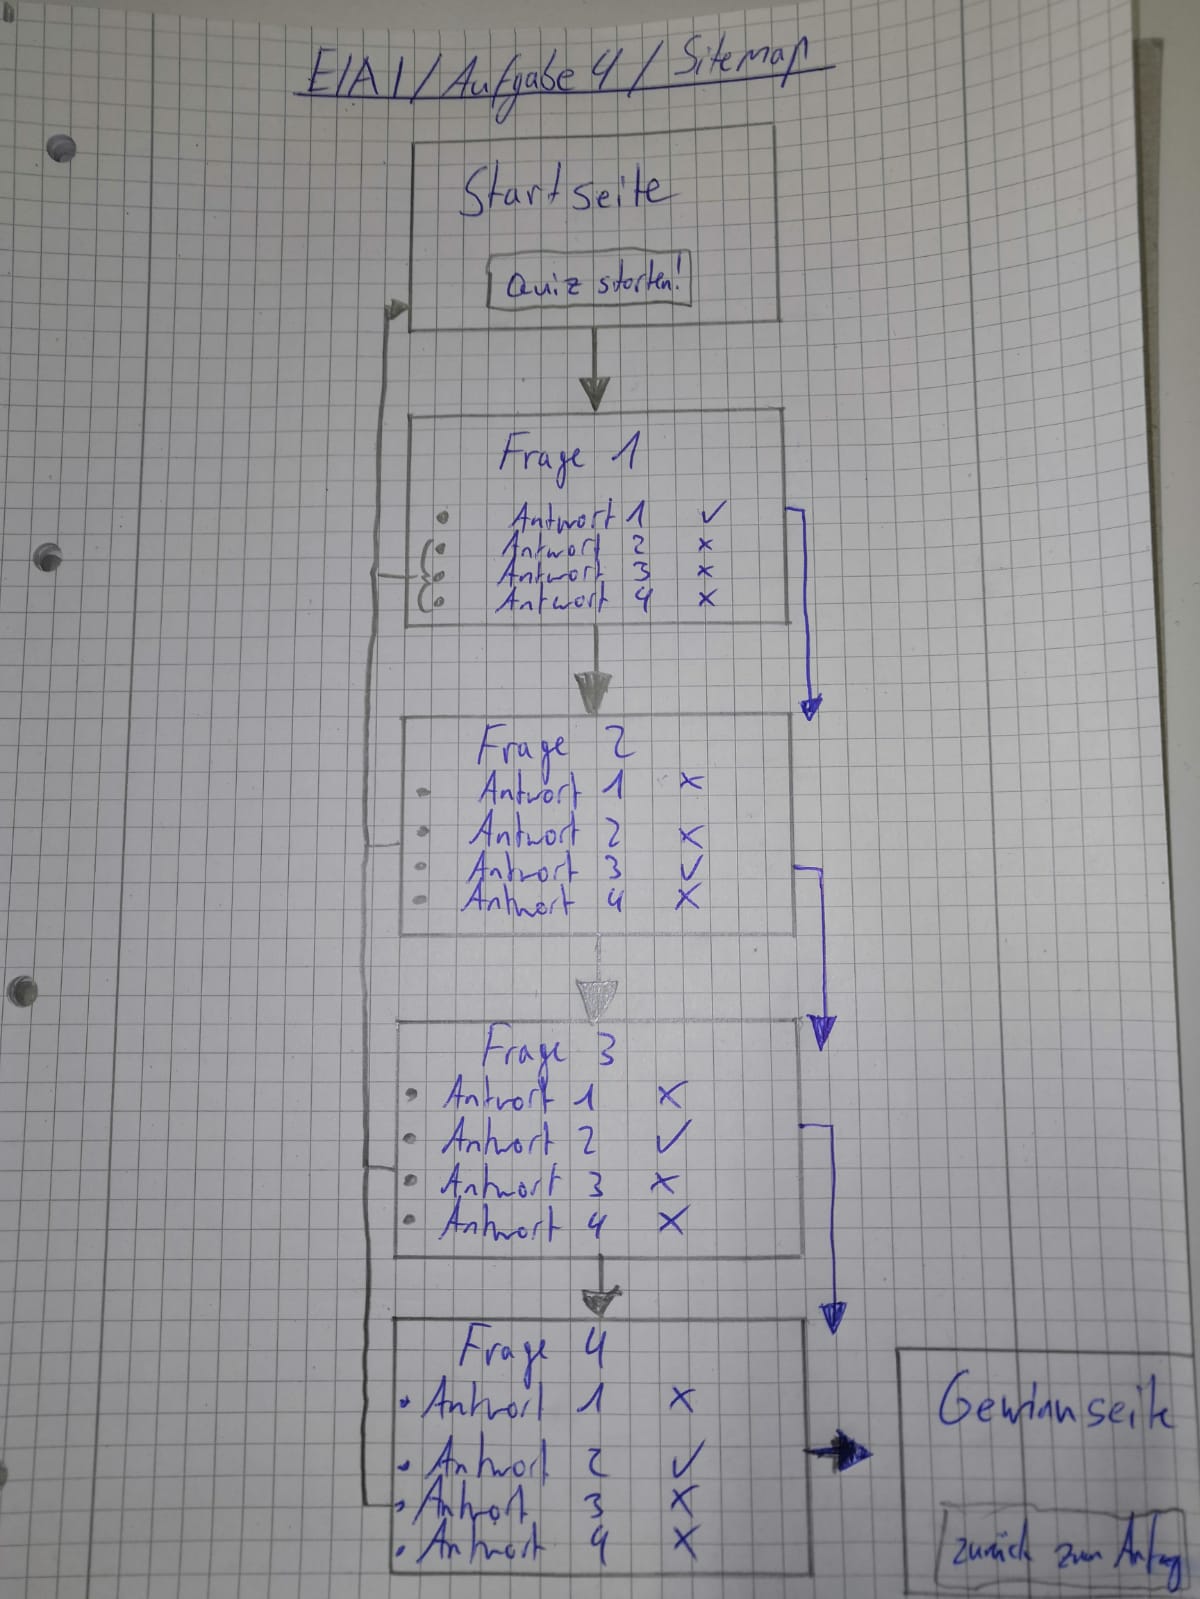 EIA1/Aufgabe 4/Sitemap
Startseite
Quiz starten!
Frage 1
Antwort 1 ✓
Antwort 2 x
Antwort 3 x
Antwort 4 x
Frage 2
Antwort 1 x
Antwort 2 x
Antwort 3 ✓
Antwort 4 x
Frage 3
Antwort 1 x
Antwort 2 ✓
Antwort 3 x
Antwort 4 x
Frage 4
Antwort 1 x
Antwort 2 ✓
Antwort 3 x
Antwort 4 x
Gewinnseite
zurück zum Anfang